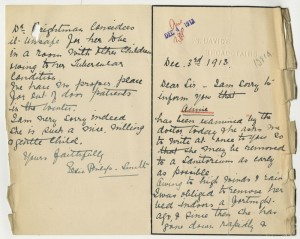 DEC 4 1913
Dec. 3rd 1913.
Dear Sir - I am Sorry to
inform you that
Annie
has been examined by the
doctor today & he asks me
to write at once to you so
that she may be removed
to a Sanitorium as early
as possible.
Owing to high winds & rain
I was obliged to remove her
bed indoors a fortnight
ago, & since then she has
gone down rapidly &
Dr. considers
it unsafe for her to be
in a room with other Children
owing to her Tubercular
Condition.
We have no proper place
for out of door patients
in the Winter.
I am very sorry indeed
She is such a nice, willing
gentle Child.
Yours faithfully